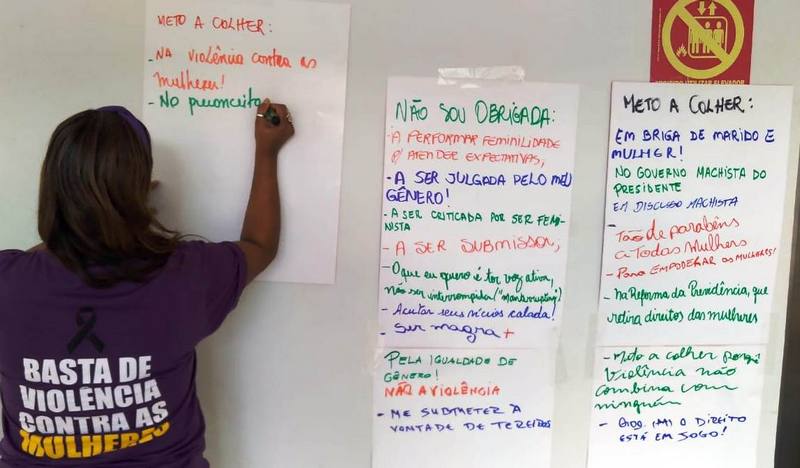 METO A COLHER:
- NA VIOLÊNCIA CONTRA AS
MULHERES!
- NO PRECONCEITO
BASTA DE
VIOLÊNCIA
CONTRA AS
MULHERES
NÃO SOU OBRIGADA:
- A PERFORMAR FEMINILIDADE
P/ ATENDER EXPECTATIVAS;
- A SER JULGADA PELO MEU
GÊNERO!
- A SER CRITICADA POR SER FEMI-
NISTA
- A SER SUBMISSA;
- O que eu quero é ter voz ativa,
não ser interrompida ("Manterrupting")
- Aceitar seus vícios calada!
- Ser magra +
PELA IGUALDADE DE
GÊNERO!
NÃO A VIOLÊNCIA
- ME SUBMETER À
VONTADE DE TERCEIROS
PROIBIDO UTILIZAR ELEVADOR
METO A COLHER:
EM BRIGA DE MARIDO E
MULHER!
NO GOVERNO MACHISTA DO
PRESIDENTE
EM DISCURSO MACHISTA
- Tão de parabéns
a Todas Mulheres
- Para EMPODERAR AS MULHERES!
- Na Reforma da Previdência, que
retira direitos das mulheres
- Meto a colher porque
Violência não
combina com
ninguém
- O DIREITO
ESTÁ EM JOGO!